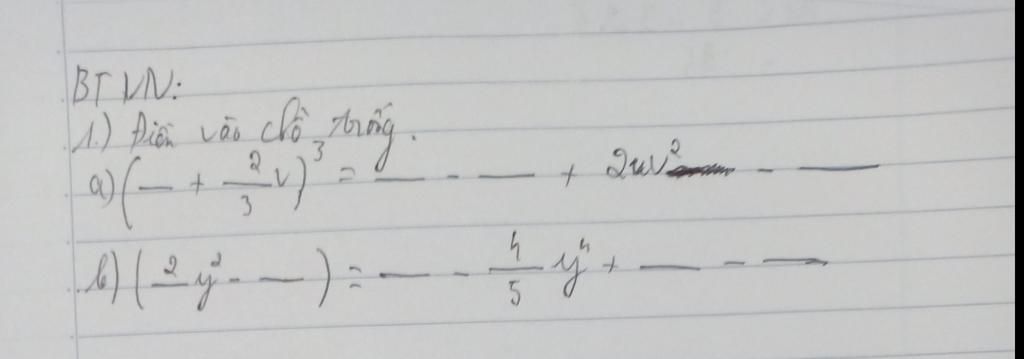 BTVN:
1.) Điền vào chỗ trống.
a) (__ + 2/3 v)³ = __ - __ + 2uv² - __
b) (2y² - __) = __ - 4/5 y⁴ + __ - __